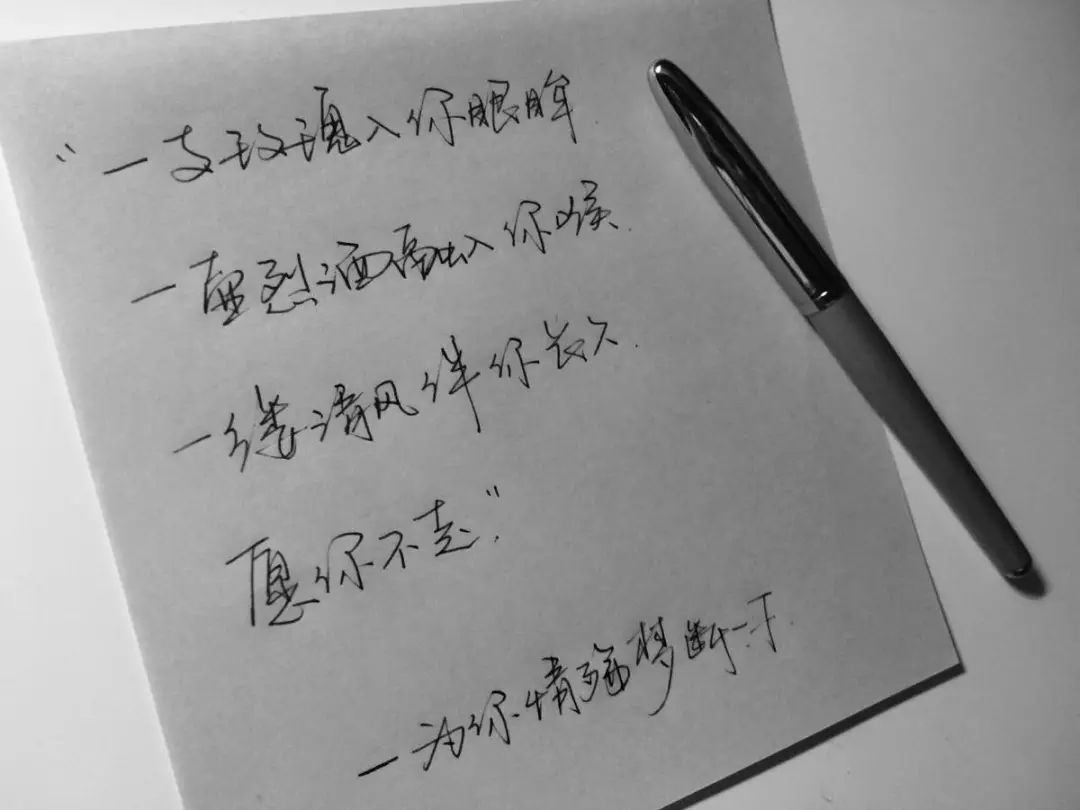 “一支玫瑰入你眼眸.
一壶烈酒融入你喉.
一缕清风伴你长久.
愿你不走.”
一为你.情殇梦断一干.